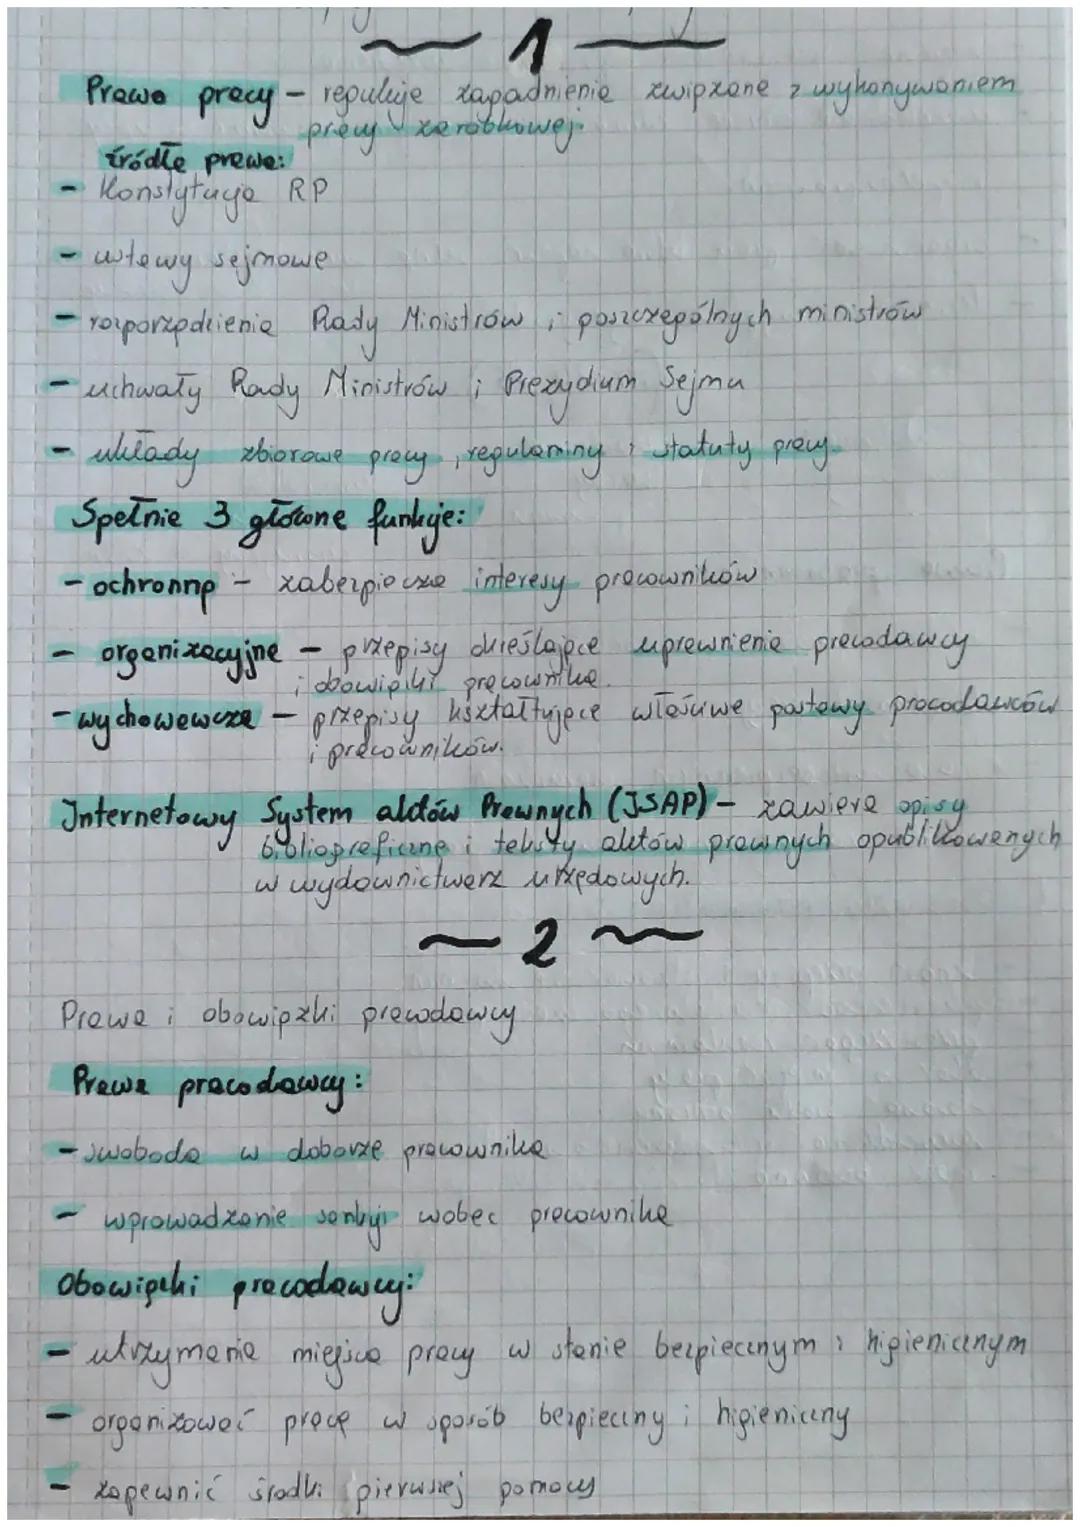 1
Prawo pracy – reguluje zagadnienia związane z wykonywaniem
pracy zarobkowej.
źródła prawa:
- Konstytucja RP
- ustawy sejmowe
- rozporządzenia Rady Ministrów i poszczególnych ministrów
- uchwały Rady Ministrów i Prezydium Sejmu
- układy zbiorowe pracy, regulaminy i statuty pracy.
Spełnia 3 główne funkcje:
- ochronną - zabezpiecza interesy pracowników
- organizacyjną – przepisy określające uprawnienia pracodawcy
i obowiązki pracownika.
- wychowawczą – przepisy kształtujące właściwe postawy pracodawców
i pracowników.
Internetowy System aktów Prawnych (ISAP) – zawiera opisy
bibliograficzne i teksty aktów prawnych opublikowanych
w wydawnictwach urzędowych.
~ 2 ~
Prawa i obowiązki pracodawcy
Prawa pracodawcy:
- swoboda w doborze pracownika
- wprowadzanie sankcji wobec pracownika
Obowiązki pracodawcy:
- utrzymania miejsca pracy w stanie bezpiecznym i higienicznym
- organizować pracę w sposób bezpieczny i higieniczny
- zapewnić środki pierwszej pomocy